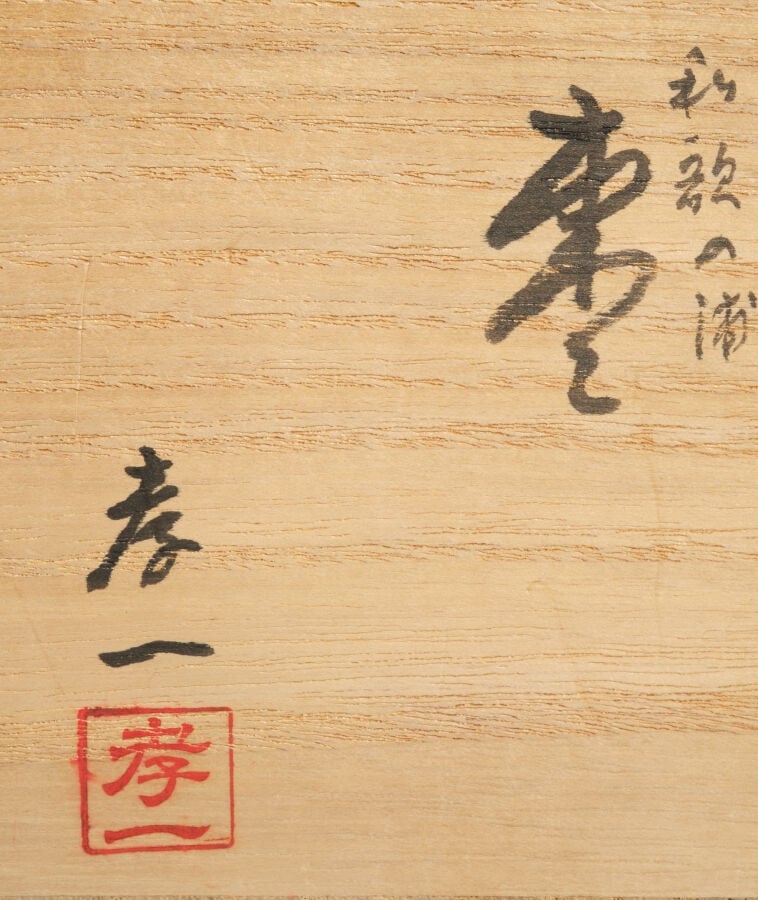 和歌の浦
棗
孝一
孝一